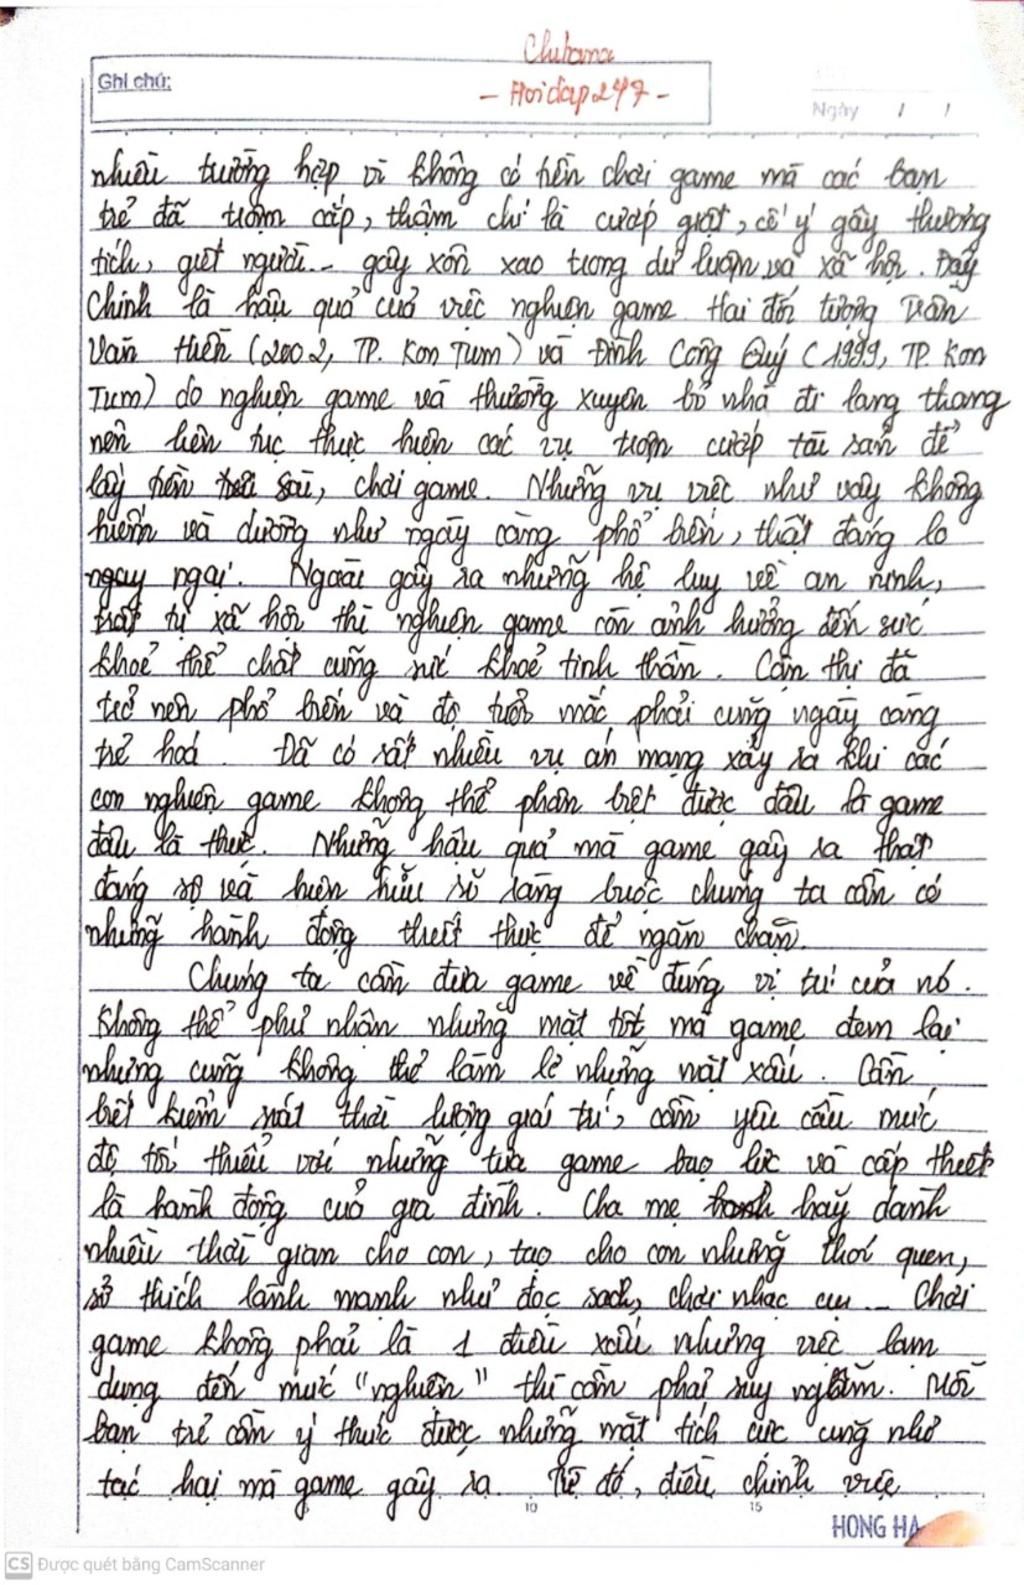 Chibana
Ghi chú:
- Hoidap247 -
Ngày / /
nhiều trường hợp vì không có tiền chơi game mà các bạn
trẻ đã trộm cắp, thậm chí là cướp giật, cố ý gây thương
tích, giết người... gây xôn xao trong dư luận và xã hội. Đây
chính là hậu quả của việc nghiện game. Hai đối tượng Trần
Văn Hiền (2002, TP. Kon Tum) và Đinh Công Quý (1999, TP. Kon
Tum) do nghiện game và thường xuyên bỏ nhà đi lang thang
nên liên tục thực hiện các vụ trộm cướp tài sản để
lấy tiền tiêu sài, chơi game. Những vụ việc như vậy không
hiếm và dường như ngày càng phổ biến, thật đáng lo
ngay ngại. Ngoài gây ra những hệ luỵ về an ninh,
trật tự xã hội thì nghiện game còn ảnh hưởng đến sức
khoẻ thể chất cũng sức khoẻ tinh thần. Cận thị đã
trở nên phổ biến và độ tuổi mắc phải cũng ngày càng
trẻ hoá. Đã có rất nhiều vụ án mạng xảy ra khi các
con nghiện game không thể phân biệt được đâu là game
đâu là thực. Những hậu quả mà game gây ra thật
đáng sợ và hiện hữu rõ ràng buộc chúng ta cần có
những hành động thiết thực để ngăn chặn.
Chúng ta cần đưa game về đúng vị trí của nó.
Không thể phủ nhận những mặt tốt mà game đem lại
nhưng cũng không thể làm lơ những mặt xấu. Cần
biết kiểm soát thời lượng giải trí, cần yêu cầu mức
độ tối thiểu với những tựa game bạo lực và cấp thiết
là hành động của gia đình. Cha mẹ hãy dành
nhiều thời gian cho con, tạo cho con những thói quen,
sở thích lành mạnh như đọc sách, chơi nhạc cụ ... Chơi
game không phải là 1 điều xấu nhưng việc lạm
dụng đến mức "nghiện" thì cần phải suy ngẫm. Mỗi
bạn trẻ cần ý thức được những mặt tích cực cũng như
tác hại mà game gây ra. Từ đó, điều chỉnh việc
10 15
HONG HA
CS Được quét bằng CamScanner